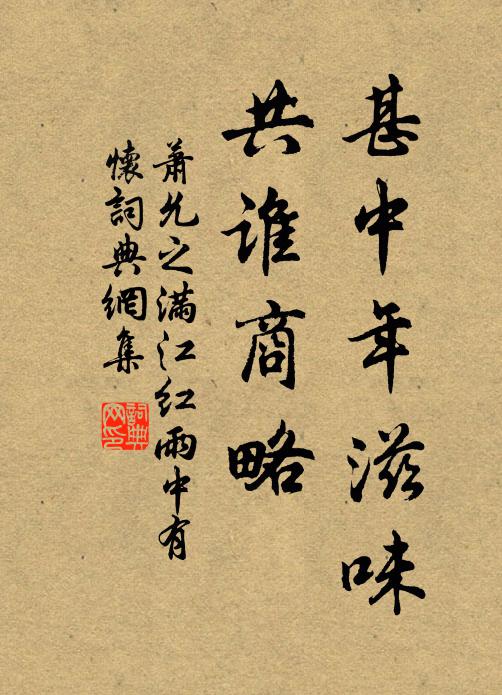 甚中年滋味
共谁商略
萧允之满江红雨中有
怀词典网集
词典网印